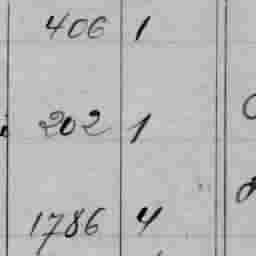 406 1
202 1
1786 4